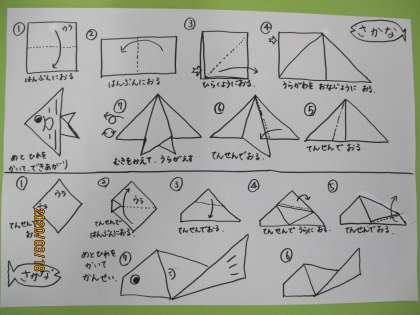 ① うら
はんぶんにおる
②
はんぶんにおる
③
ひらくようにおる
④
うらがわを おなじように おる.
さかな
⑤
てんせんで おる
⑥
てんせんでおる.
⑦
むきをかえて. うらがえす
めと ひれを
かいて. できあがり
① うら
てんせんで
② うら
てんせんで
はんぶんにおる.
③
てんせんでおる.
④
てんせんで うらにおる.
⑤
てんせんでおる.
⑥
⑦
めとひれを
かいて
かんせい.
さかな